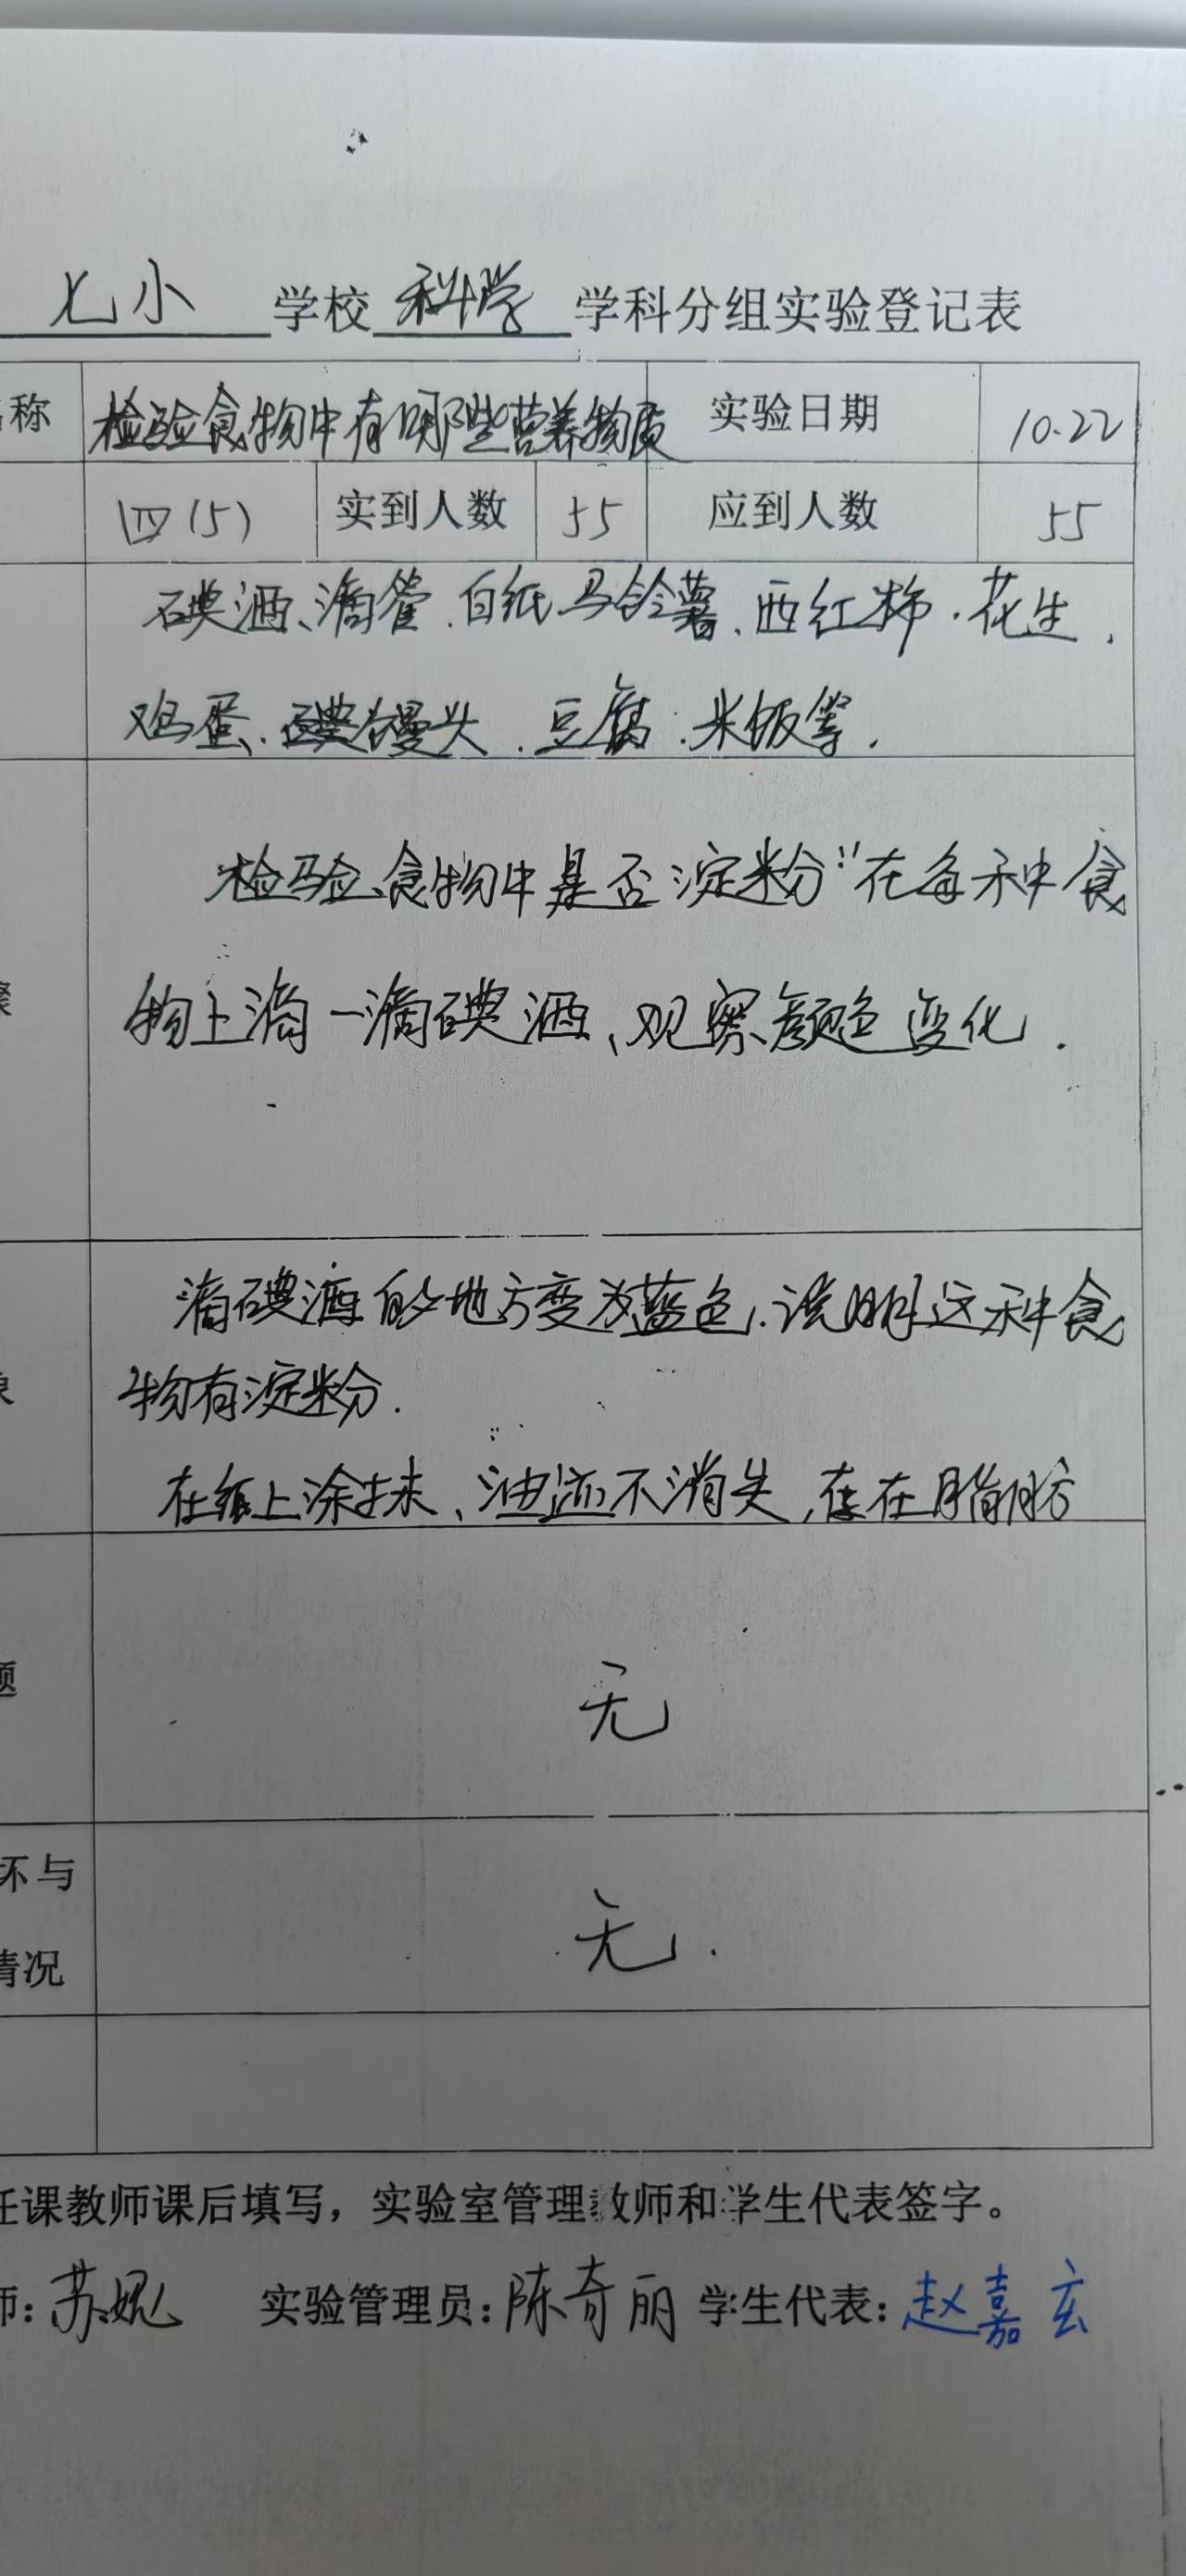 七小 学校 科学 学科分组实验登记表
称 检验食物中有哪些营养物质 实验日期 10.22
四(5) 实到人数 55 应到人数 55
碘酒、滴管.白纸.马铃薯、西红柿.花生,
鸡蛋、馒头.豆腐.米饭等.
检验食物中是否淀粉:在每种食
物上滴一滴碘酒、观察颜色变化.
滴碘酒的地方变为蓝色.说明这种食
物有淀粉.
在纸上涂抹、油迹不消失,存在脂肪
题
无
坏与
情况
无.
任课教师课后填写，实验室管理教师和学生代表签字。
师: 实验管理员:陈奇丽 学生代表:赵嘉玄